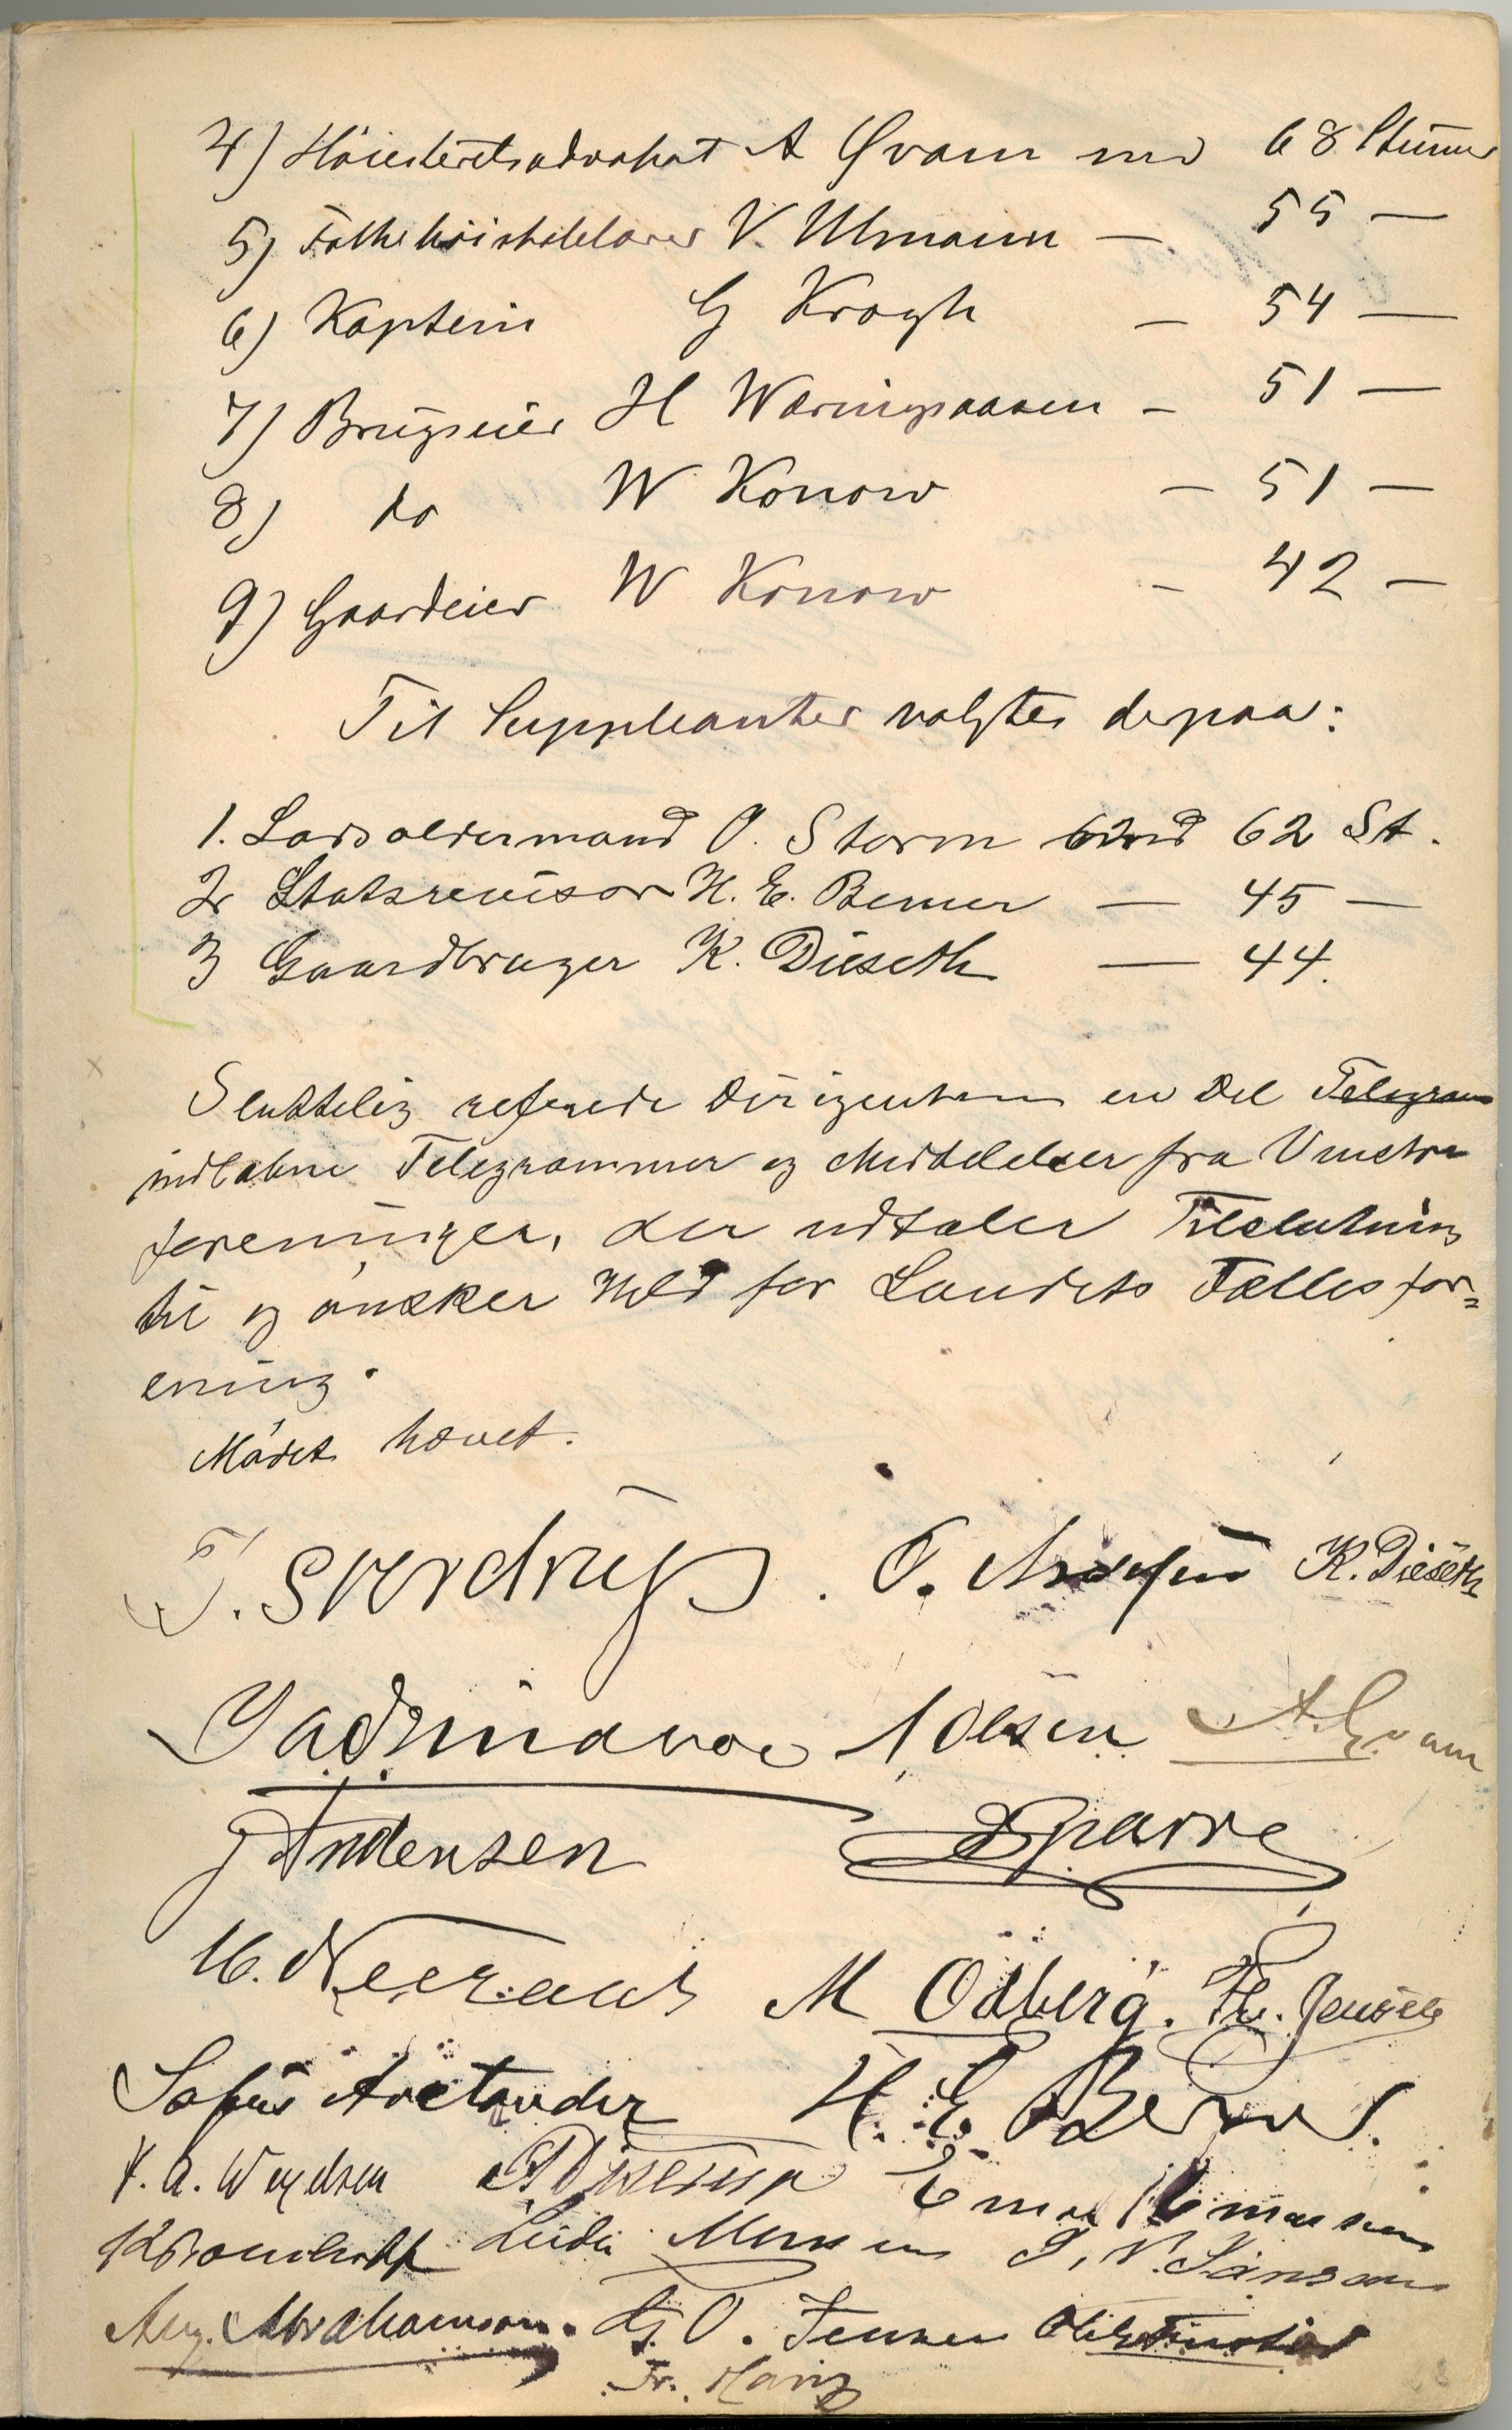 4) Høiesteretsadvokat A Qvam med 68 Stemmer
5) Folkehøiskolelærer V. Ullmann — 55 —
6) Kaptein G Krogh — 54 —
7) Brugseier H Wæringsaasen — 51 —
8) do W Konow — 51 —
9) Gaardeier W Konow — 42 —
Til Suppleanter valgtes derpaa:
1. Lodsoldermand O. Storm med 62 St.
2 Statsrevisor H. E. Berner — 45 —
3 Gaardbruger K. Dieseth — 44.
Sluttelig refererede Dirigenten en Del Telegram
indløbne Telegrammer og Meddelelser fra Venstre
foreninger, der udtaler Tilslutning
til og ønsker Held for Landets Fælles for=
ening.
Mødet hævet.
J. Sverdrup. O. K. Dieseth
N Olsen A. Qvam
J Andersen Sparre
M Ødberg.
Sofus Arctander H. E. Berner.
V. A. Wexelsen
Aug. Abrahamson. O. Jensen
Fr. Hariz